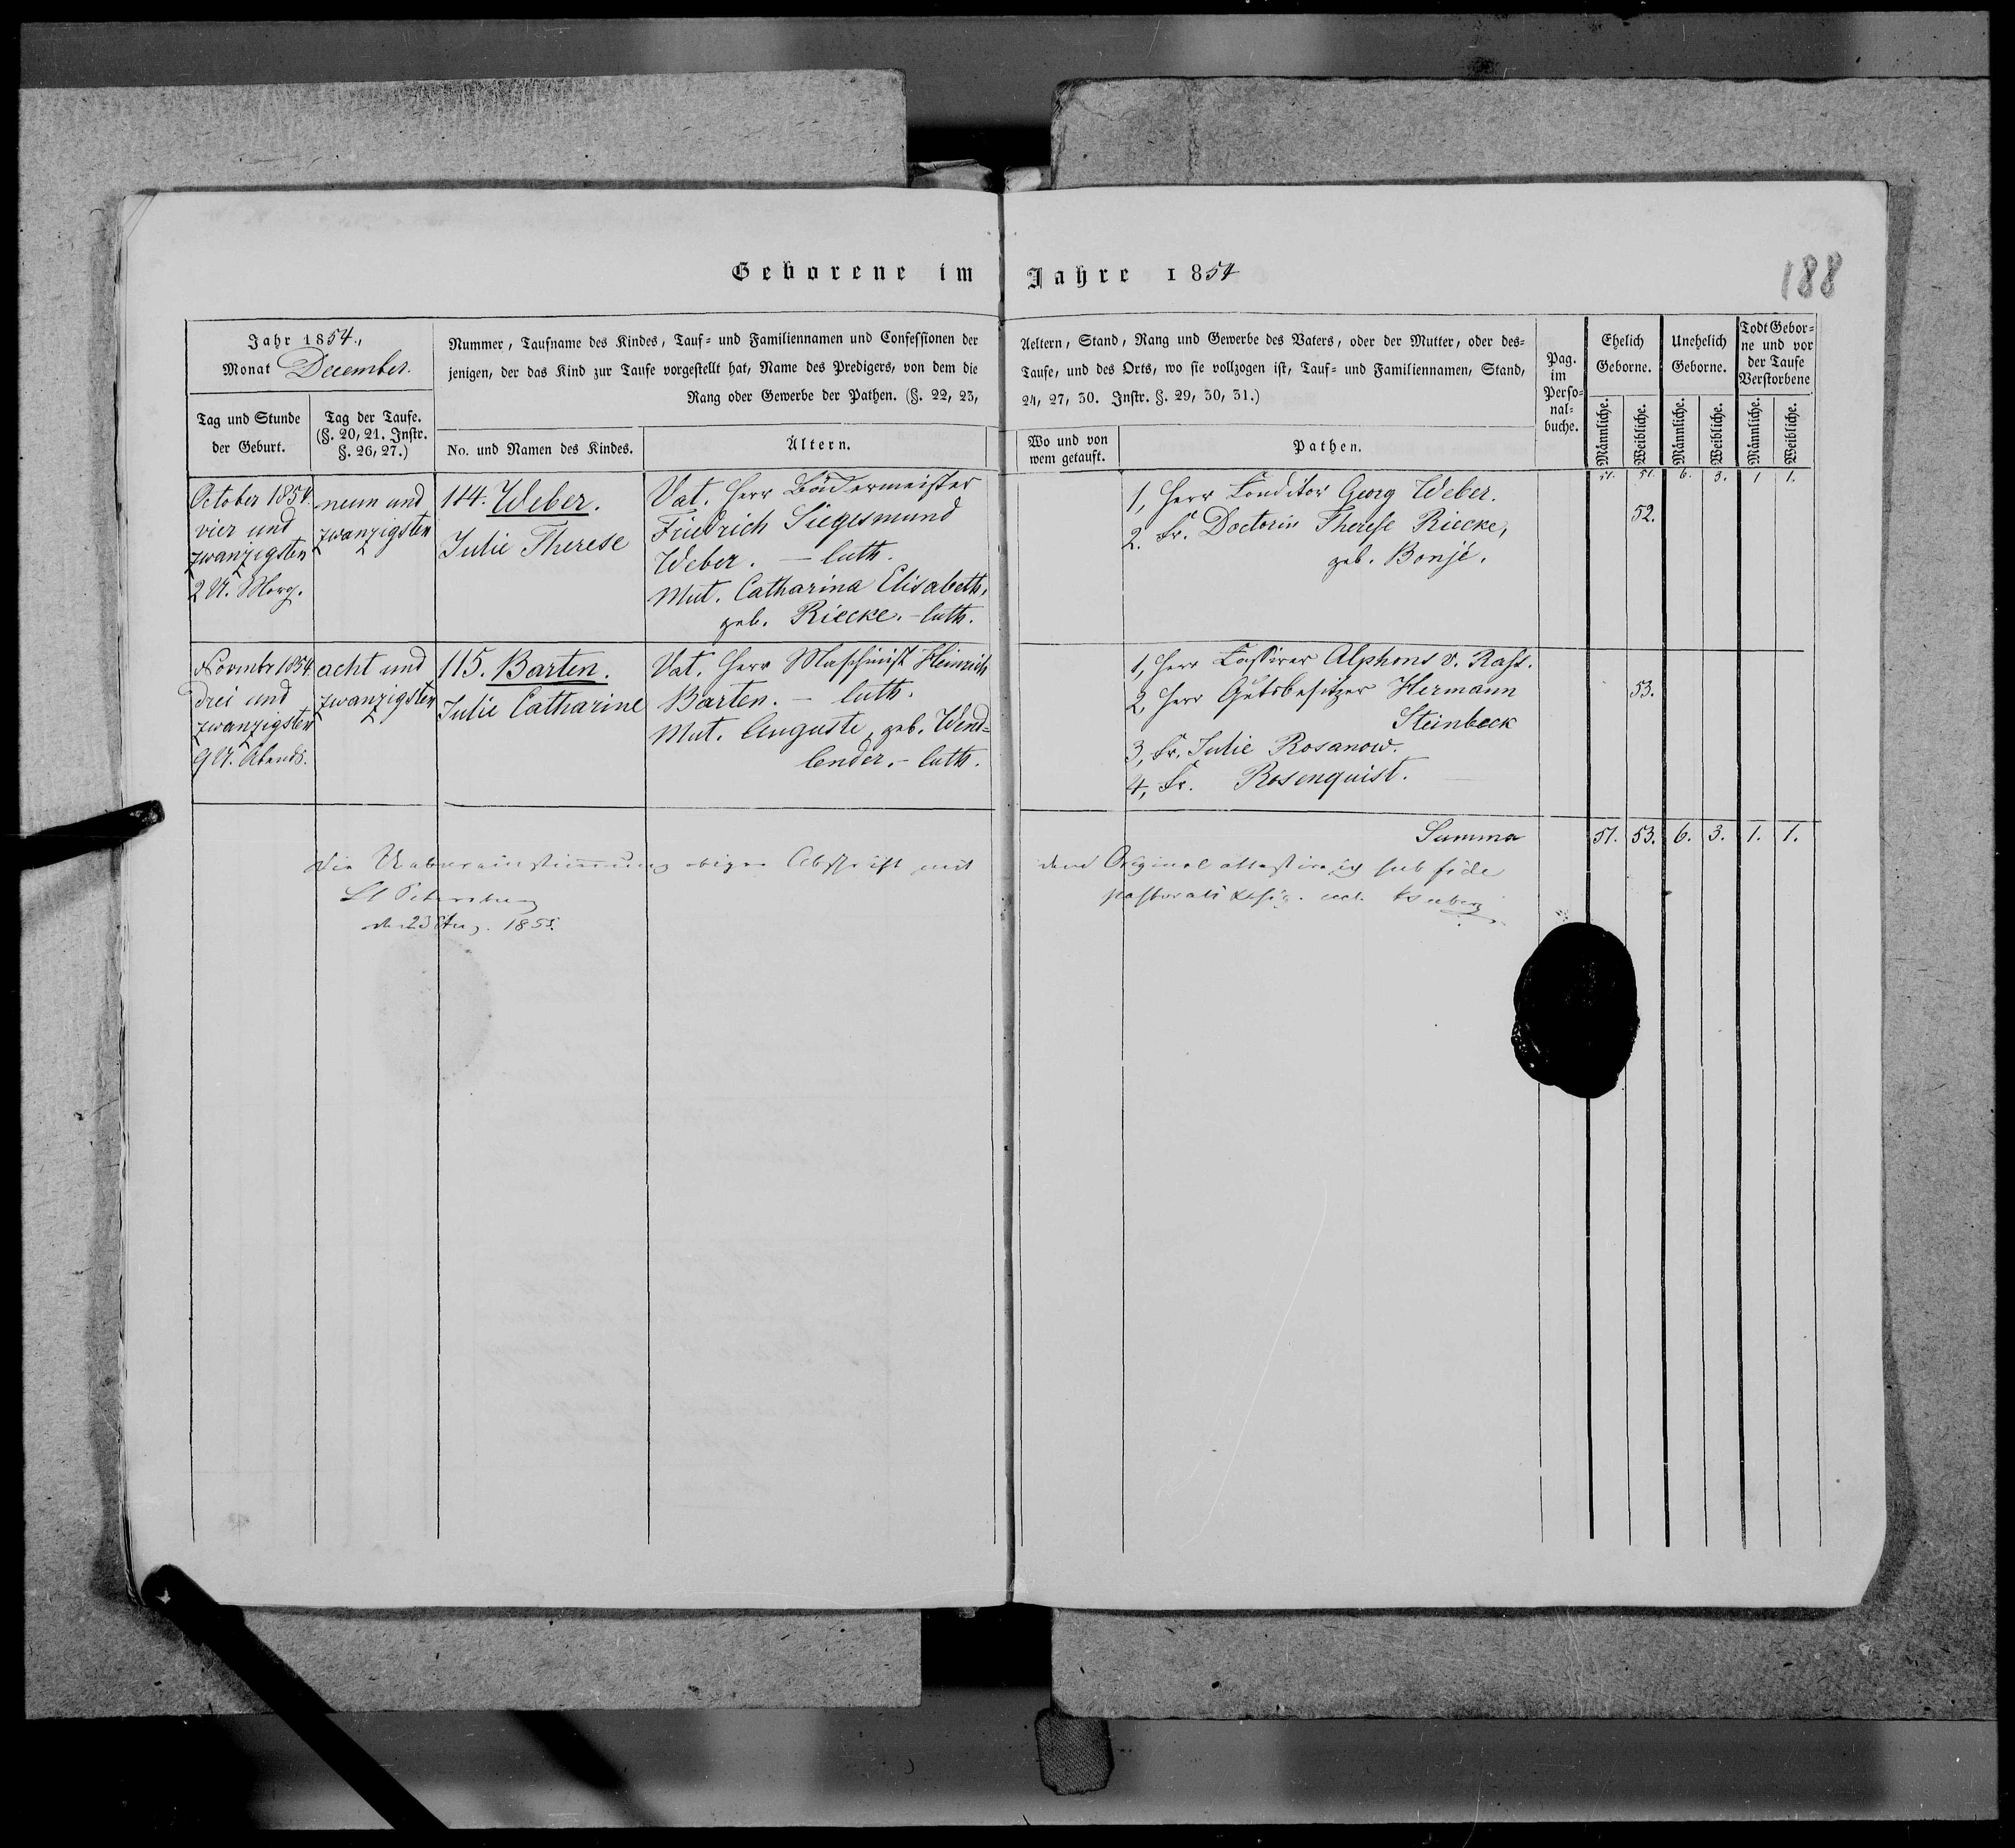 Geborene im Jahre 1854
188
Jahr 1854.,
Monat December.
Nummer, Taufname des Kindes, Tauf- und Familiennamen und Confessionen der
jenigen, der das Kind zur Taufe vorgestellt hat, Name des Predigers, von dem die
Rang oder Gewerbe der Pathen. (§. 22, 23,
Aeltern, Stand, Rang und Gewerbe des Vaters, oder der Mutter, oder des-
Taufe, und des Orts, wo sie vollzogen ist, Tauf- und Familiennamen, Stand,
24, 27, 30. Instr. §. 29, 30, 31.)
Pag.
im
Perso-
nal-
buche.
Ehelich
Geborne.
Unehelich
Geborne.
Todt Gebor-
ne und vor
der Taufe
Verstorbene
Tag und Stunde
der Geburt.
Tag der Taufe.
(§. 20, 21. Instr.
§. 26, 27.)
No. und Namen des Kindes.
Ältern.
Wo und von
wem getauft.
Pathen.
Männliche.
Weibliche.
Männliche.
Weibliche.
Männliche.
Weibliche.
51. 51. 6. 3. 1 1.
October 1854.
vier und
zwanzigsten
2 U. Morg.
neun und
zwanzigsten
114. Weber.
Julie Therese
Vat. Herr Bäckermeister
Friedrich Siegesmund
Weber. – luth.
Mut. Catharina Elisabeth,
geb. Riecke. – luth.
1, Herr Conditor Georg Weber.
2. Fr. Doctorin Therese Riecke,
geb. Bonjé.
52.
Novembr 1854
drei und
zwanzigsten
9 U. Abends.
acht und
zwanzigsten
115. Barten.
Julie Catharine
Vat. Herr Maschinist Heinrich
Barten. – luth.
Mut. Auguste, geb. Wend-
lender. – luth.
1, Herr Cassirer Alphons v. Rass.
2, Herr Gutsbesitzer Hermann
Steinbeck
3, Fr. Julie Rosanow.
4, Fr. Rosenquist.
53.
Summa 51. 53. 6. 3. 1. 1.
Die Uebereinstimmung obiger Abschrift mit dem Original attestire ich sub fide
pastorali
St Petersburg
den 23 Aug. 1855.